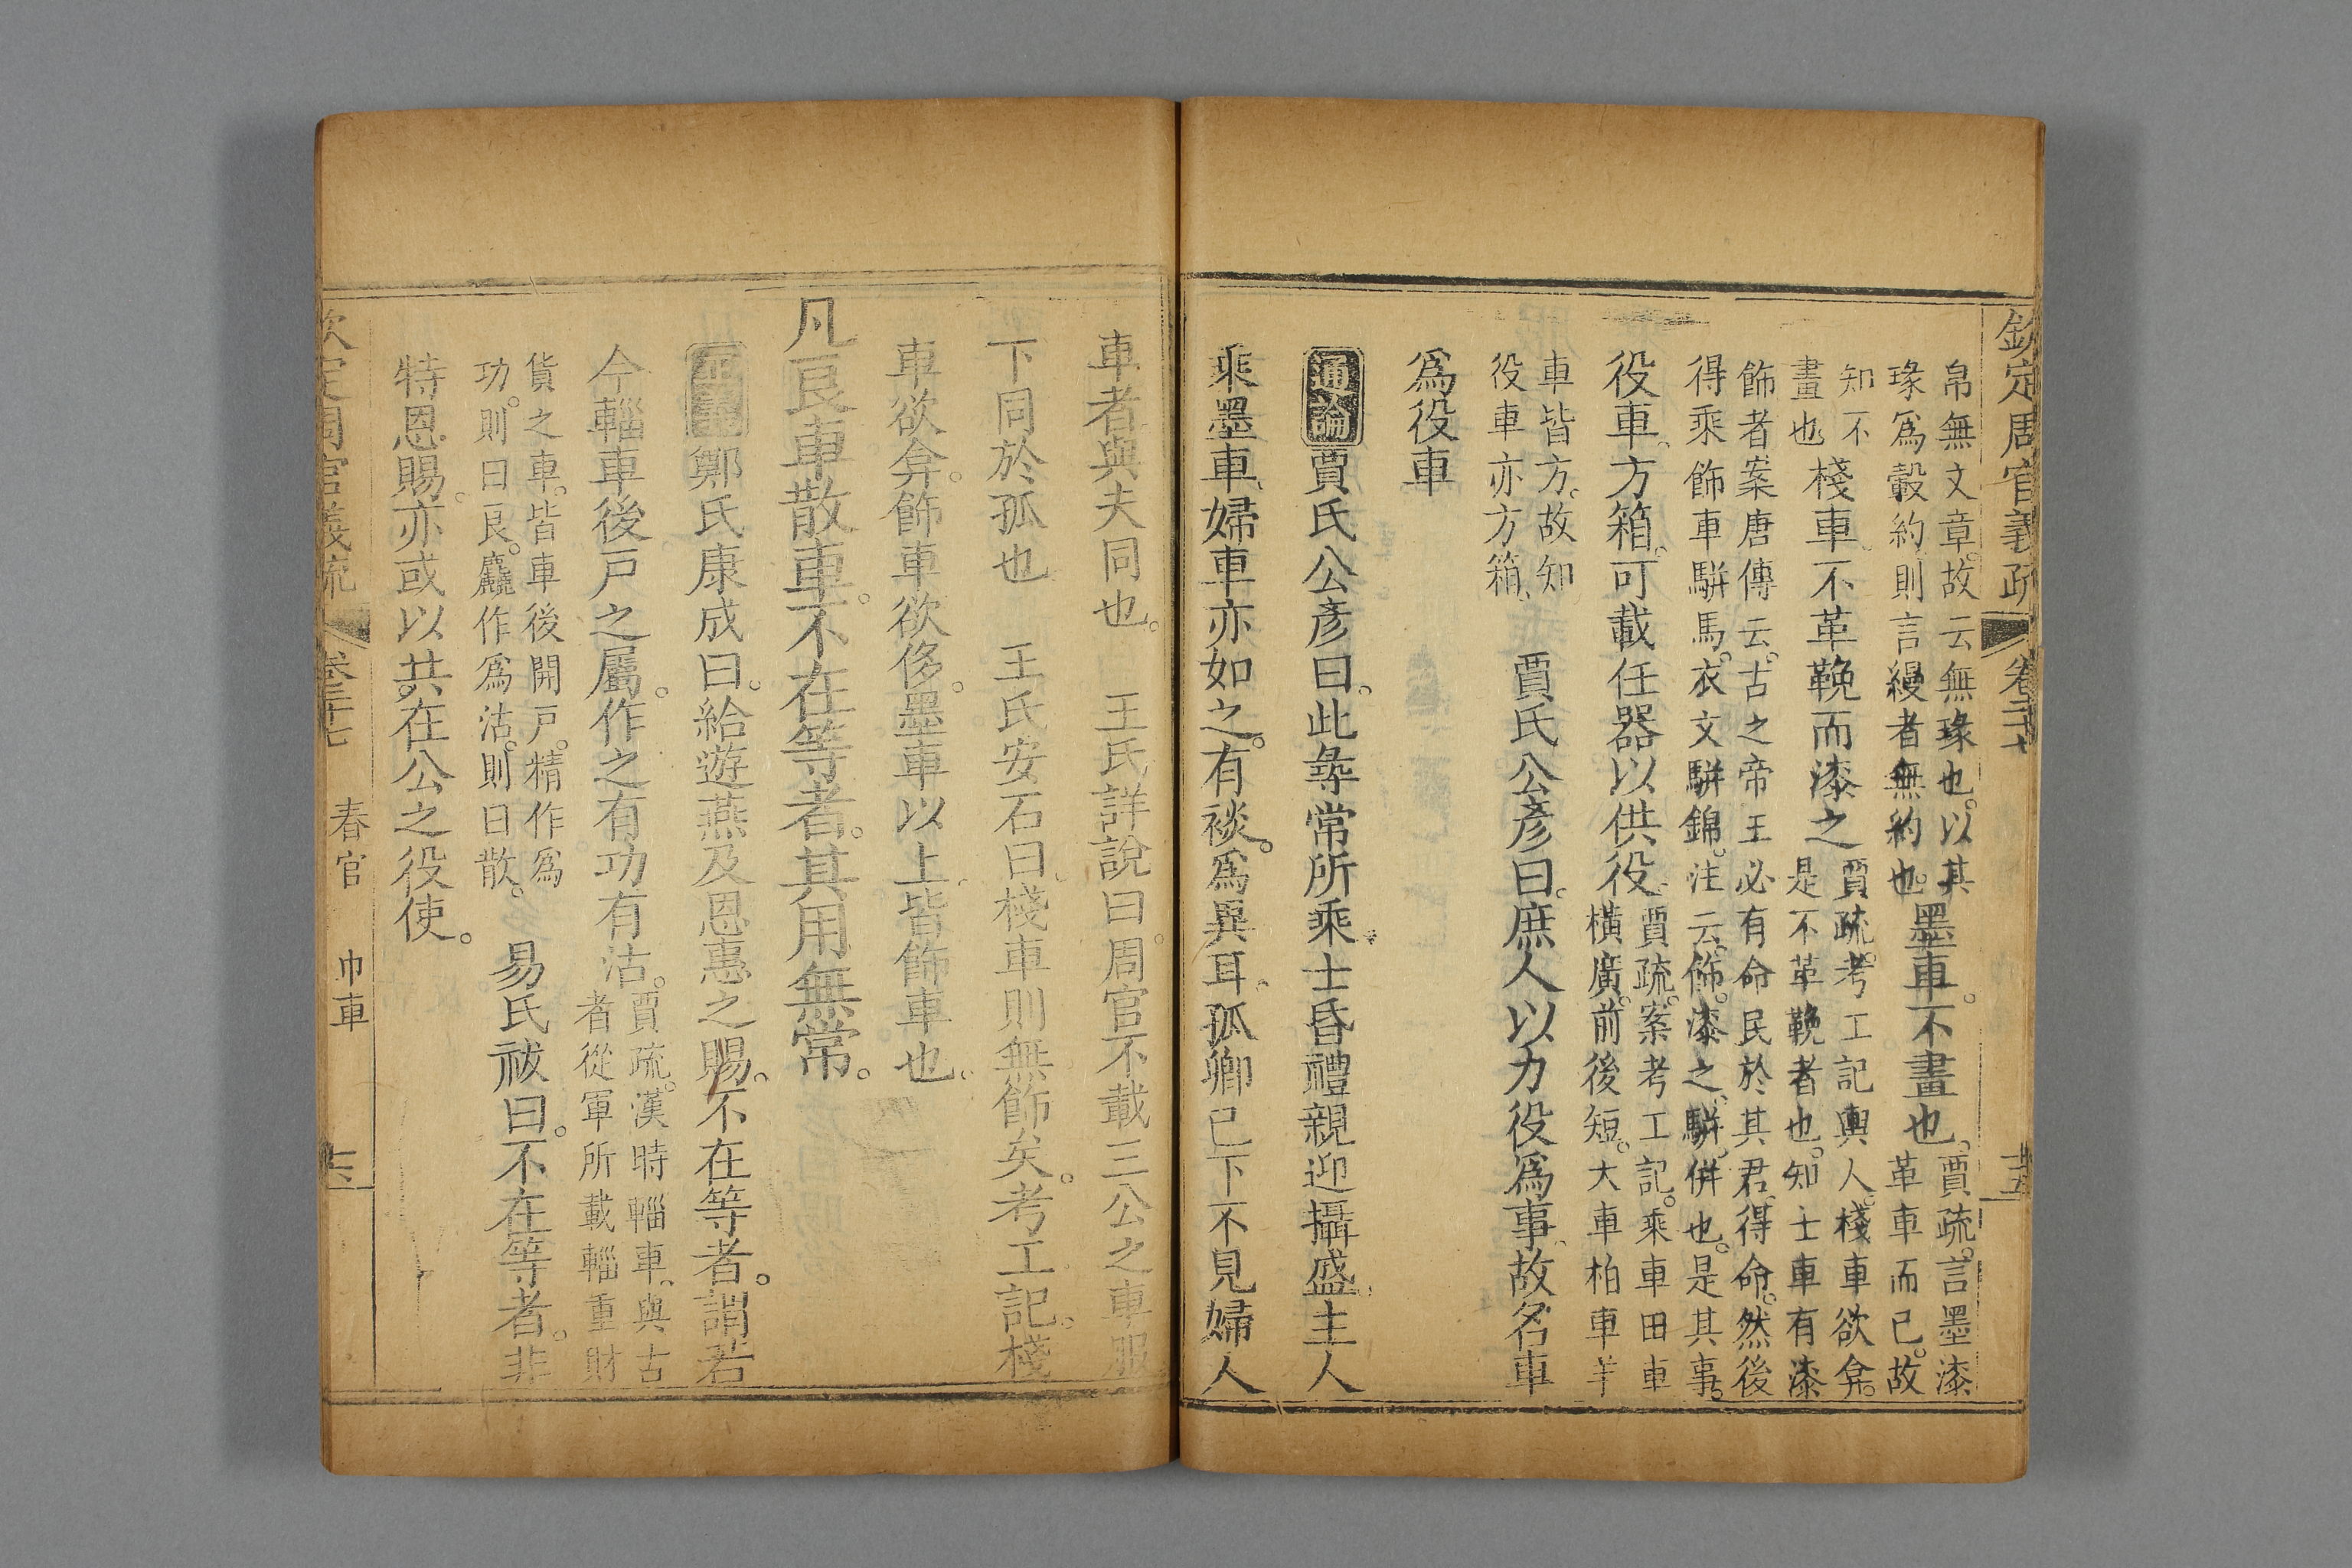 欽定周官義疏 卷二十七
帛無文章。故云無瑑也。以其
瑑爲轂約則言縵者無約也。墨車。不畫也。
賈疏。言墨漆
革車而已。故
知不
畫也
棧車。不革鞔而漆之
賈疏。考工記輿人。棧車欲弇。
是不革鞔者也。知士車有漆
飾者。案唐傳云。古之帝王必有命民於其君。得命。然後
得乘飾車駢馬。衣文駢錦。注云。飾。漆之。駢。併也。是其事。
役車。方箱。可載任器以供役。
賈疏。案考工記。乘車田車
橫廣。前後短。大車柏車羊
車皆方。故知
役車亦方箱。
賈氏公彥曰。庶人以力役爲事。故名車
爲役車
通論賈氏公彥曰。此彝常所乘。士昏禮親迎攝盛。主人
乘墨車。婦車亦如之。有裧。爲異耳。孤卿已下不見婦人
車者。與夫同也。 王氏詳說曰。周官不載三公之車服
下同於孤也 王氏安石曰。棧車則無飾矣。考工記。棧
車欲弇。飾車欲侈。墨車以上。皆飾車也。
凡良車散車。不在等者。其用無常。
正義鄭氏康成曰。給遊燕及恩惠之賜。不在等者。謂若
今輜車後戶之屬。作之有功有沽。
賈疏。漢時輜車。與古
者從軍所載輜重財
貨之車。皆車後開戶。精作爲
功。則曰良。麤作爲沽。則曰散。
易氏祓曰。不在等者。非
特恩賜。亦或以共在公之役使。
欽定周官義疏 卷二十七 春官 巾車